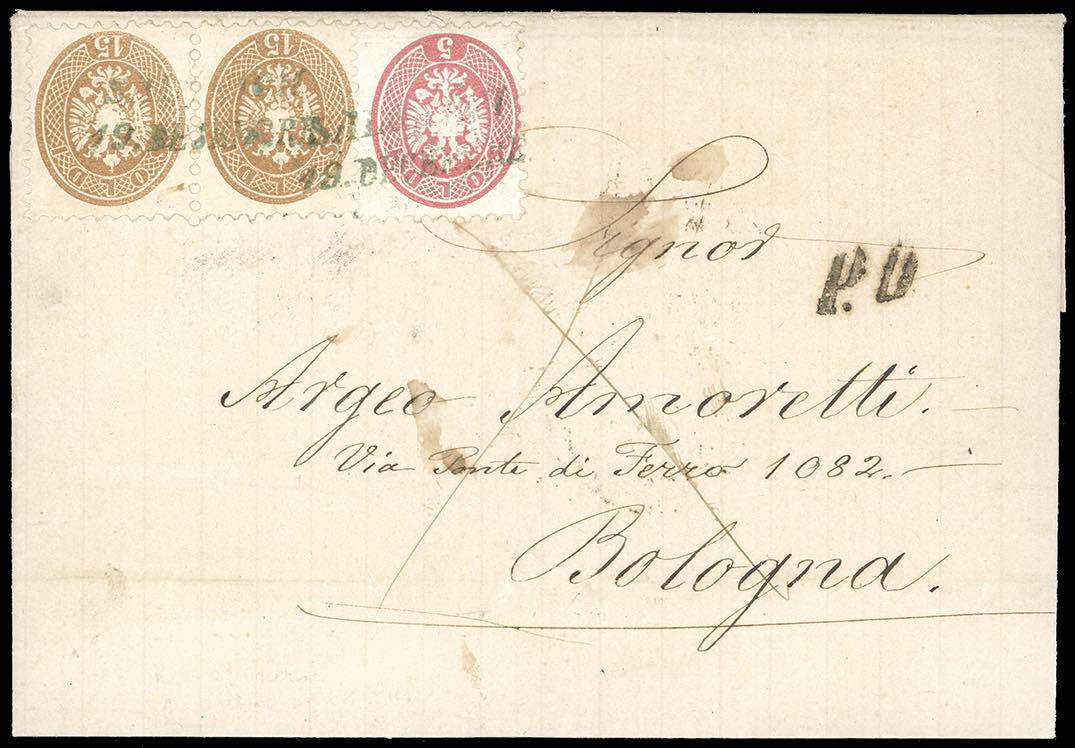 15
15
5
SOLDI
SOLDI
SOLDI
19. DE
19. DE
Signor
P.D
Argeo Amoretti.
Via Ponte di Ferro 1082.
Bologna.